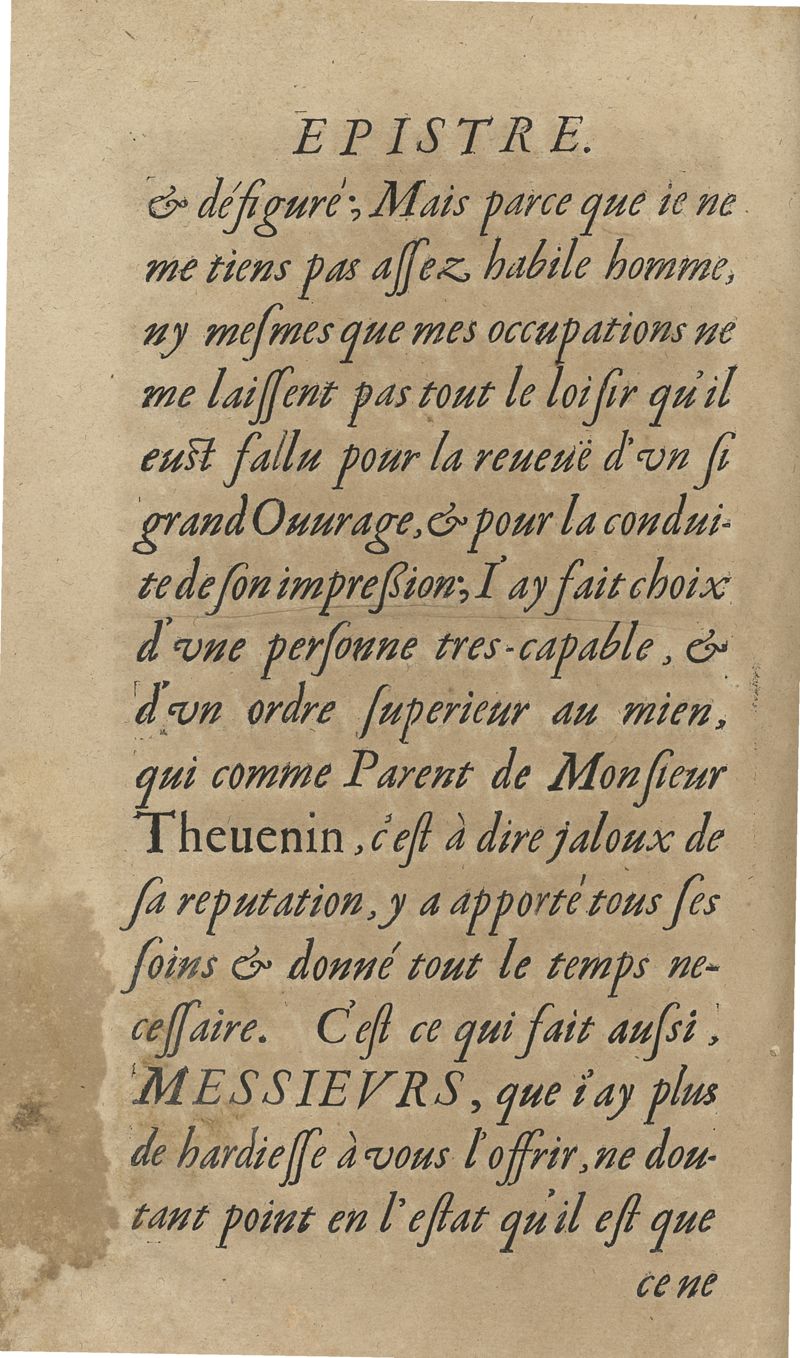 EPISTRE.
& défiguré; Mais parce que ie ne
me tiens pas aſſez habile homme,
ny meſmes que mes occupations ne
me laiſſent pas tout le loiſir qu'il
euſt fallu pour la reueuë d'vn ſi
grand Ouurage, & pour la condui-
te de ſon impreßion; I'ay fait choix
d'vne perſonne tres-capable, &
d'vn ordre ſuperieur au mien,
qui comme Parent de Monſieur
Theuenin, c'eſt à dire jaloux de
ſa reputation, y a apporté tous ſes
ſoins & donné tout le temps ne-
ceſſaire. C'eſt ce qui fait auſsi,
MESSIEVRS, que i'ay plus
de hardieſſe à vous l'offrir, ne dou-
tant point en l'eſtat qu'il eſt que
ce ne